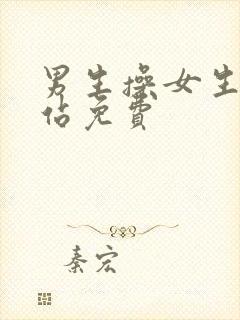 男生操女生
佔免費
秦宏